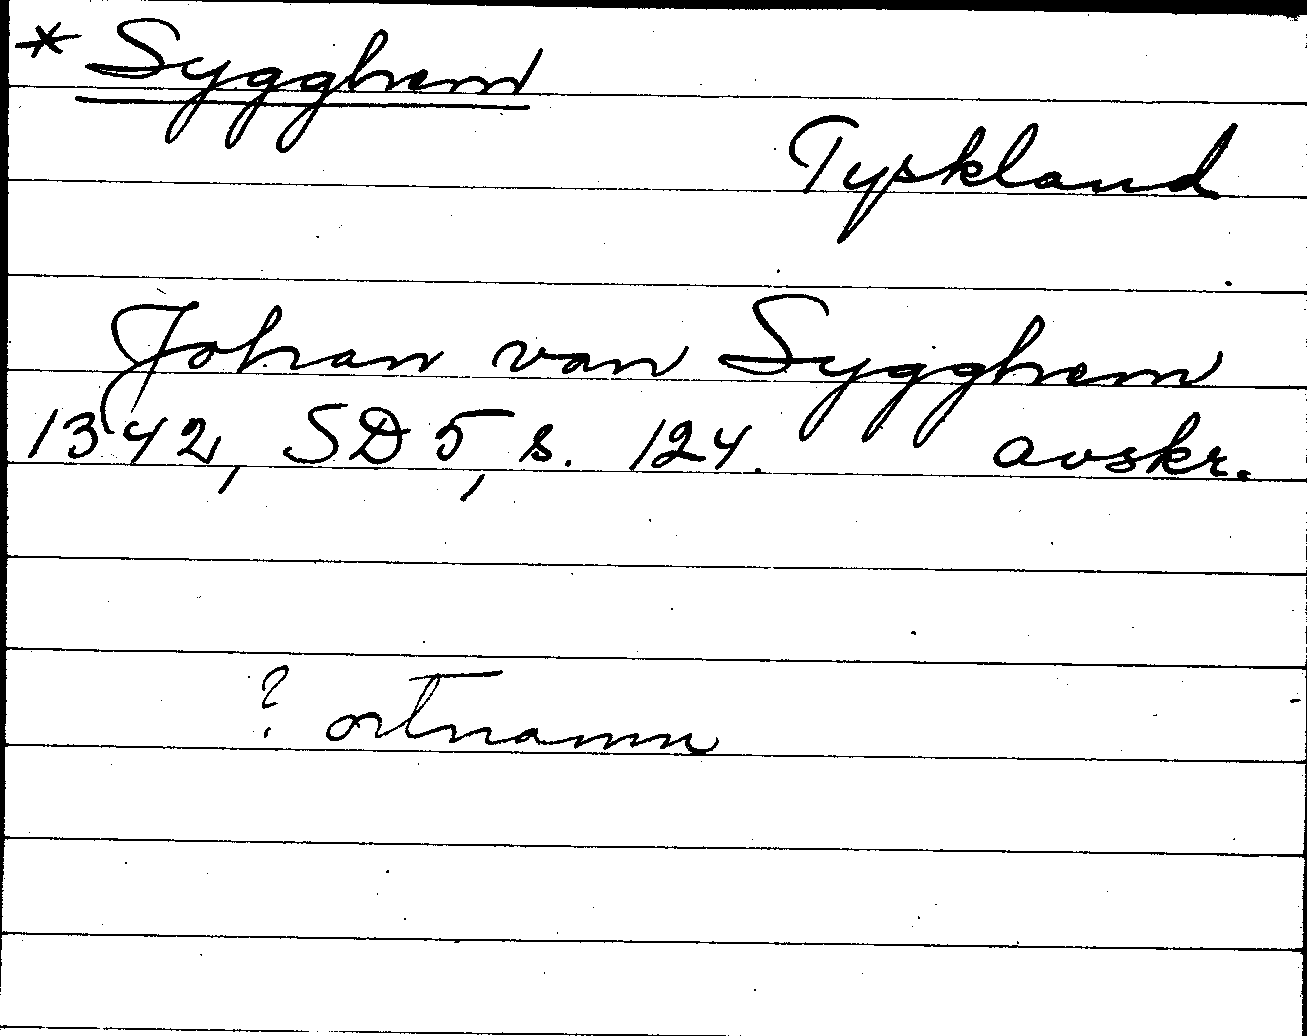 * Sygghem
Tyskland
Johan van Sygghem
1342, SD 5, s. 124. avskr.
? ortnamn